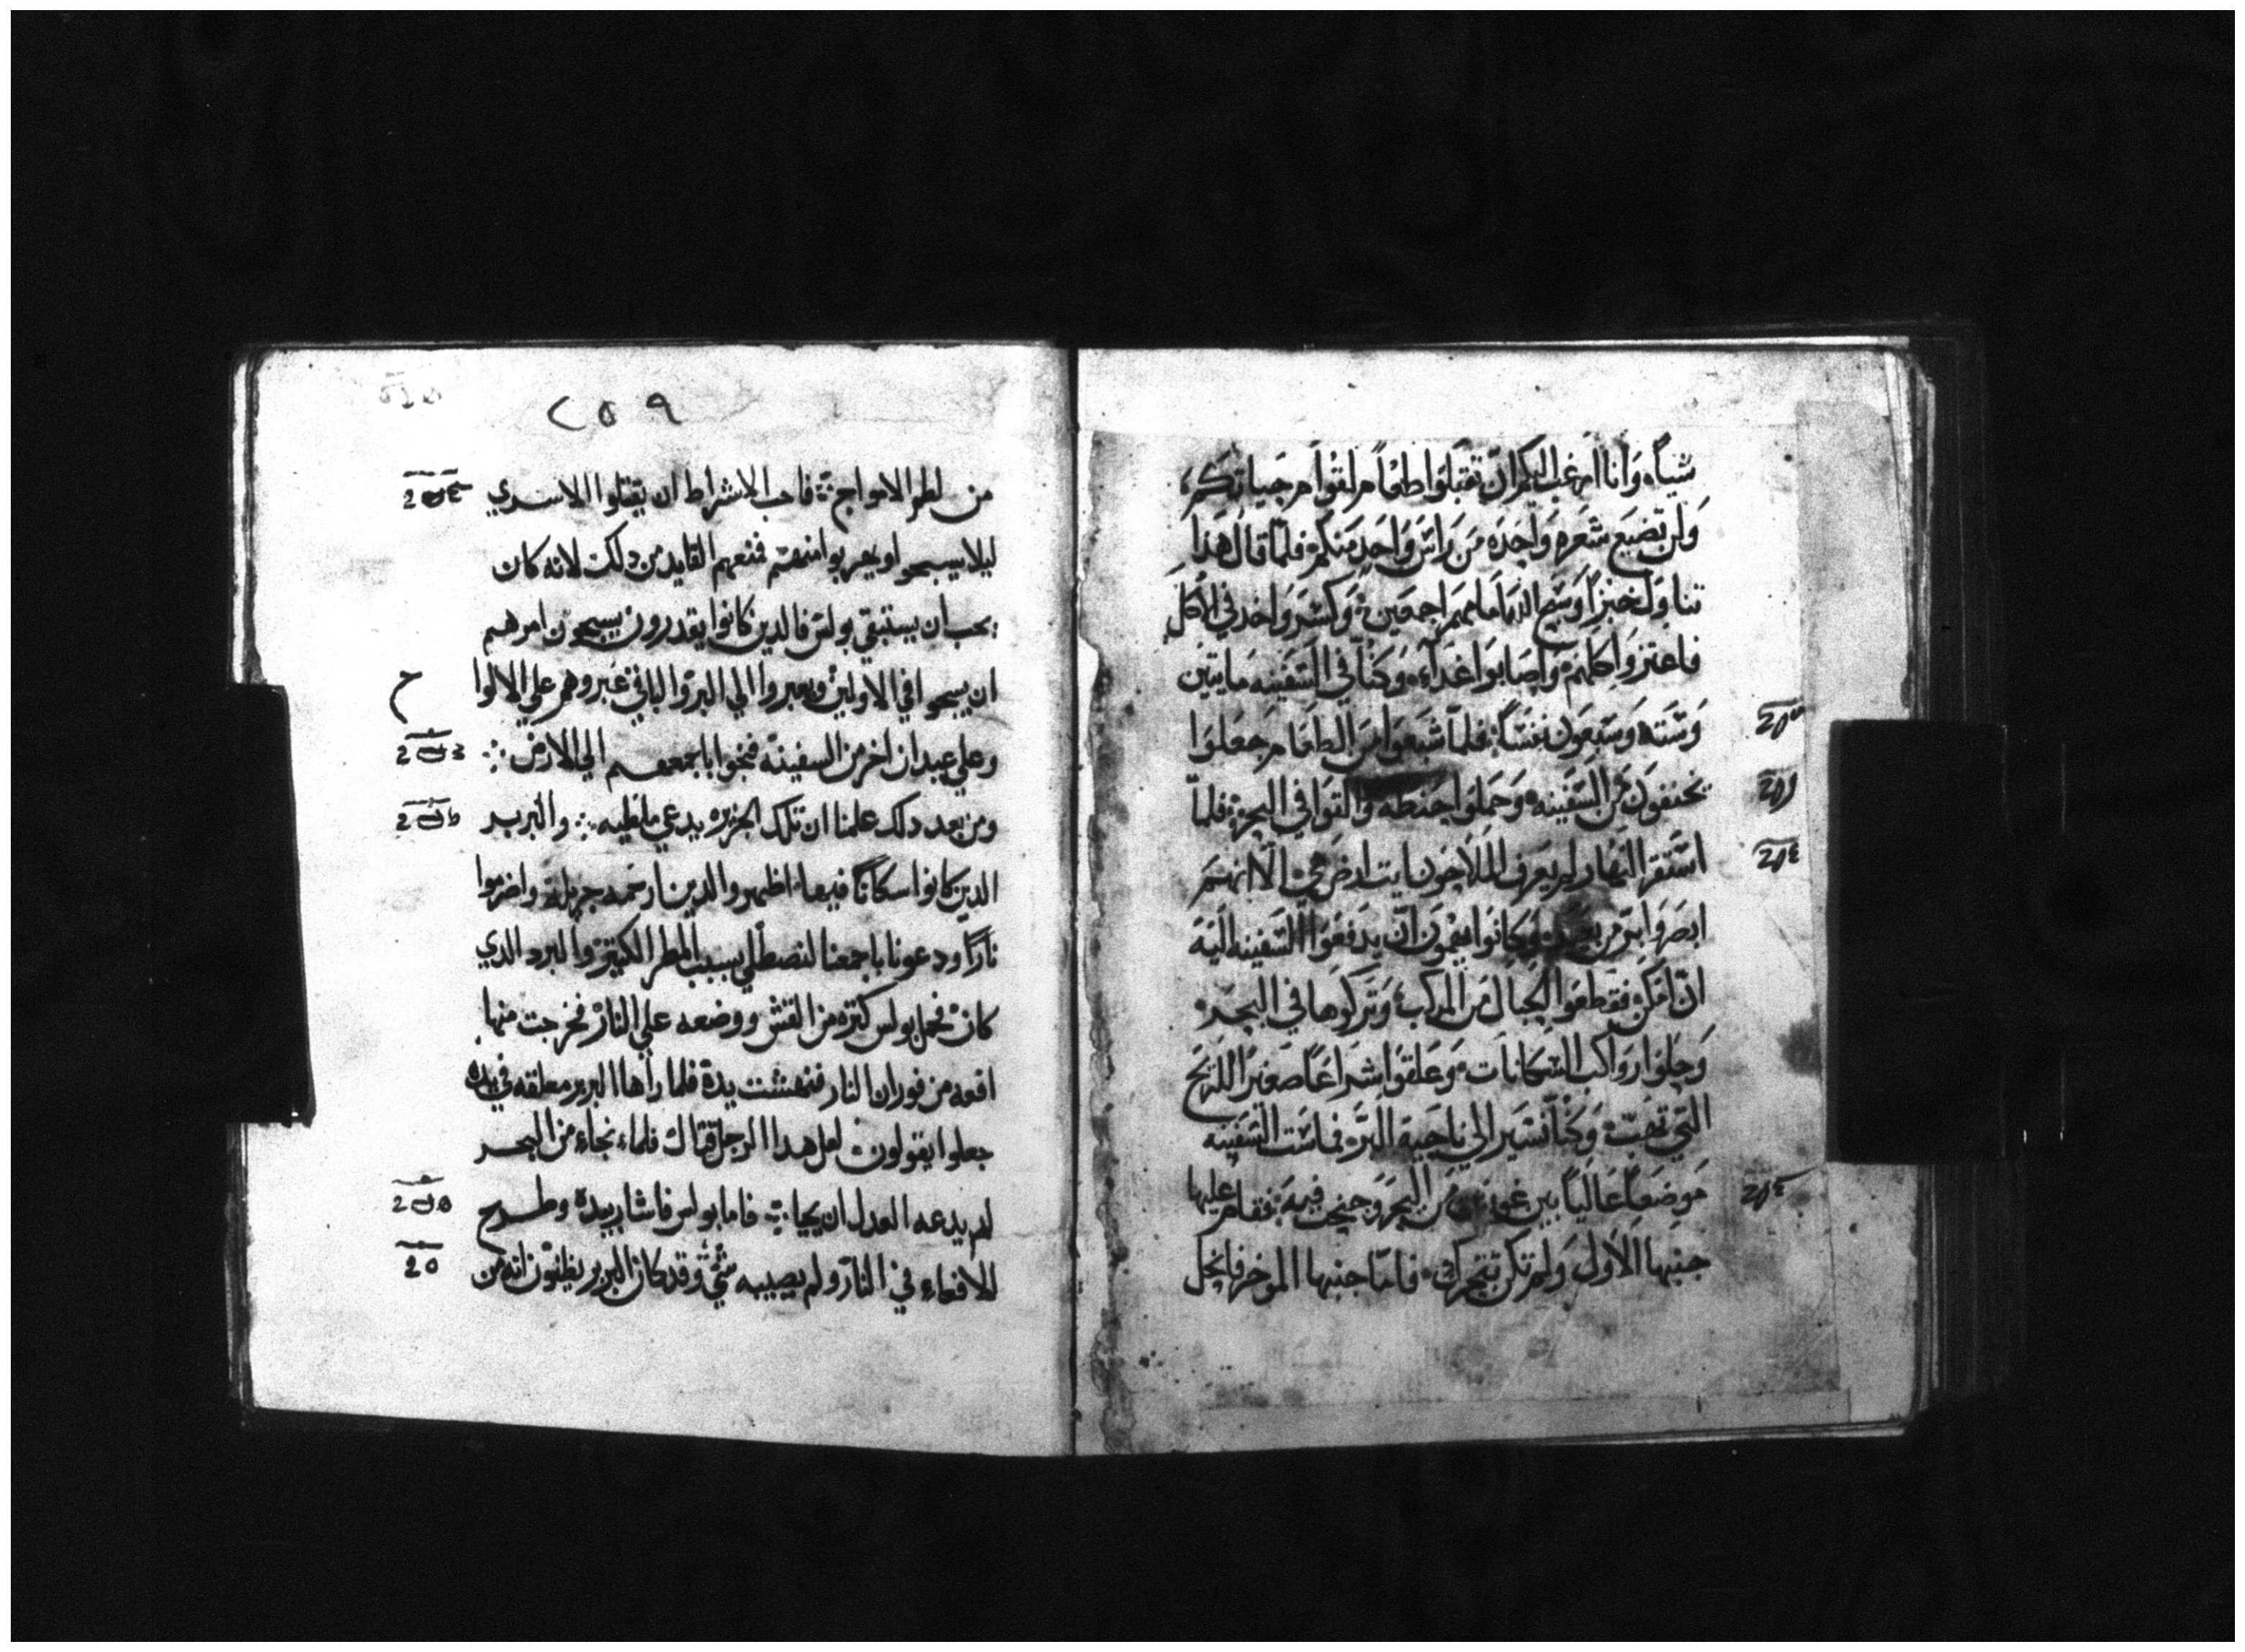 شياً وانا ارغب اليكم ان تقبلوا طعاماً لقوام حياتكم
ولن تضيع شعره واحده من راس واحد منكم فلما قال هدا
تناول خبزاً وسبح الله امامهم اجمعين وكسر واخد في الاكل
فاعتزوا كلهم واصابوا غداء وكنا في السفينه مايتين
وسته وسبعون نفساً فلما شبعوا من الطعام جعلوا
يخففون من السفينه وحملوا حنطه والقوا في البحر فلما
استقر النهار لم يعرف الملاحون ايت ارض هي الا انهم
ابصروا بر وكانوا يهمون ان يدفعوا السفينه اليه
ان امكن فقطعوا الحبال من المركب وتركوها في البحر
وحلوا رواكب السكانات وعلقوا شراعاً صغيراً للريح
التي تهب وكنا نسير الي ناحية البر فماست السفينه
موضعاً عالياً بين من البحر وجنحت فيه فقام عليها
جنبها الاول ولم تكن تتحرك فاما جنبها الموخر فانحل
٢٥٩
من لطم الامواج فاحب الاشراط ان يقتلوا الاسري
ليلا يسبحوا ويهربوا منهم فمنعهم القايد من دلك لانه كان
يحب ان يستبقي بولس فالدين كانوا يقدرون يسبحون امرهم
ان يسبحوا في الاولين ويعبروا الي البر والباقي عبروهم علي الالوا
ح
وعلي عيدان اخر من السفينه فنجوا باجمعهم الي الارض
ومن بعد دلك علمنا ان تلك الجزيره يدعي ملطيه والبربر
الدين كانوا سكاناً فيها اظهروا لدينا رحمه جزيله واضرموا
ناراً ودعونا باجمعنا لنصطلي بسبب المطر الكثير والبرد الدي
كان فحمل بولس كثره من القش ووضعه علي النار فخرجت منها
افعه من فوران النار فنهشت يده فلما راها البربر معلقه في يده
جعلوا يقولون لعل هدا الرجل قتال فلما نجا من البحر
لم يدعه العدل ان يحيا فاما بولس فاشار بيده وطرح
الافعاء في النار ولم يصيبه شي وقد كان البربر يظنون انه من